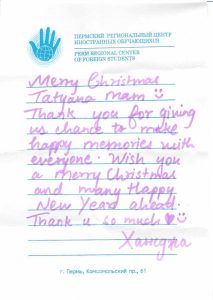 ПЕРМСКИЙ РЕГИОНАЛЬНЫЙ ЦЕНТР
ИНОСТРАННЫХ ОБУЧАЮЩИХСЯ
PERM REGIONAL CENTER
OF FOREIGN STUDENTS
Merry Christmas
Tatyana mam
Thank you for giving
us chance to make
happy memories with
everyone. Wish you
a merry Christmas
and many Happy
New Year ahead.
Thank u so much
г. Пермь, Комсомольский пр., 61